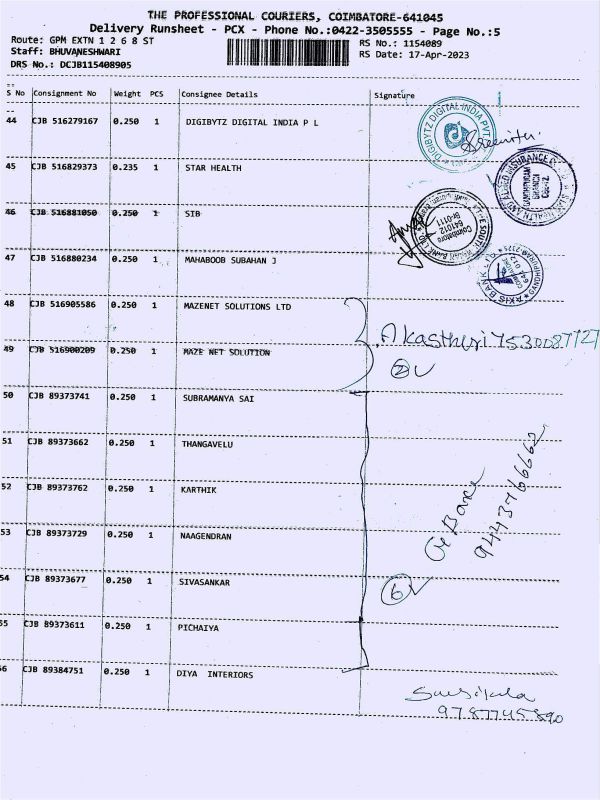 THE PROFESSIONAL COURIERS, COIMBATORE-641045
Delivery Runsheet - PCX - Phone No.:0422-3505555 - Page No.:5
Route: GPM EXTN 1 2 6 8 ST
RS No.: 1154089
Staff: BHUVANESHWARI
RS Date: 17-Apr-2023
DRS No.: DCJB115408905
S No Consignment No Weight PCS Consignee Details Signature
44 CJB 516279167 0.250 1 DIGIBYTZ DIGITAL INDIA P L
DIGIBYTZ DIGITAL INDIA PVT
45 CJB 516829373 0.235 1 STAR HEALTH
46 CJB 516881050 0.250 1 SIB
Coimbatore
641012
Br-0111
47 CJB 516880234 0.250 1 MAHABOOB SUBAHAN J
AXIS BANK LTD
48 CJB 516905586 0.250 1 MAZENET SOLUTIONS LTD
A Kasthuri 7530087727
49 CJB 516900209 0.250 1 MAZE NET SOLUTION
2
50 CJB 89373741 0.250 1 SUBRAMANYA SAI
51 CJB 89373662 0.250 1 THANGAVELU
52 CJB 89373762 0.250 1 KARTHIK
9443766662
53 CJB 89373729 0.250 1 NAAGENDRAN
54 CJB 89373677 0.250 1 SIVASANKAR
6
55 CJB 89373611 0.250 1 PICHAIYA
56 CJB 89384751 0.250 1 DIYA INTERIORS
Sasikala
9787745890